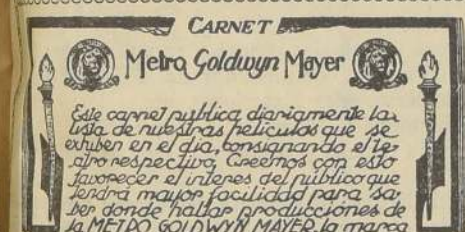 CARNET
Metro Goldwyn Mayer
Este carnet publica diariamente la
lista de nuestras peliculas que se
exhiben en el dia, consignando el te-
atro respectivo. Creemos con esto
favorecer el interes del publico que
tendra mayor facilidad para sa-
ber donde hallar producciones de
la METRO GOLDWYN MAYER la marca